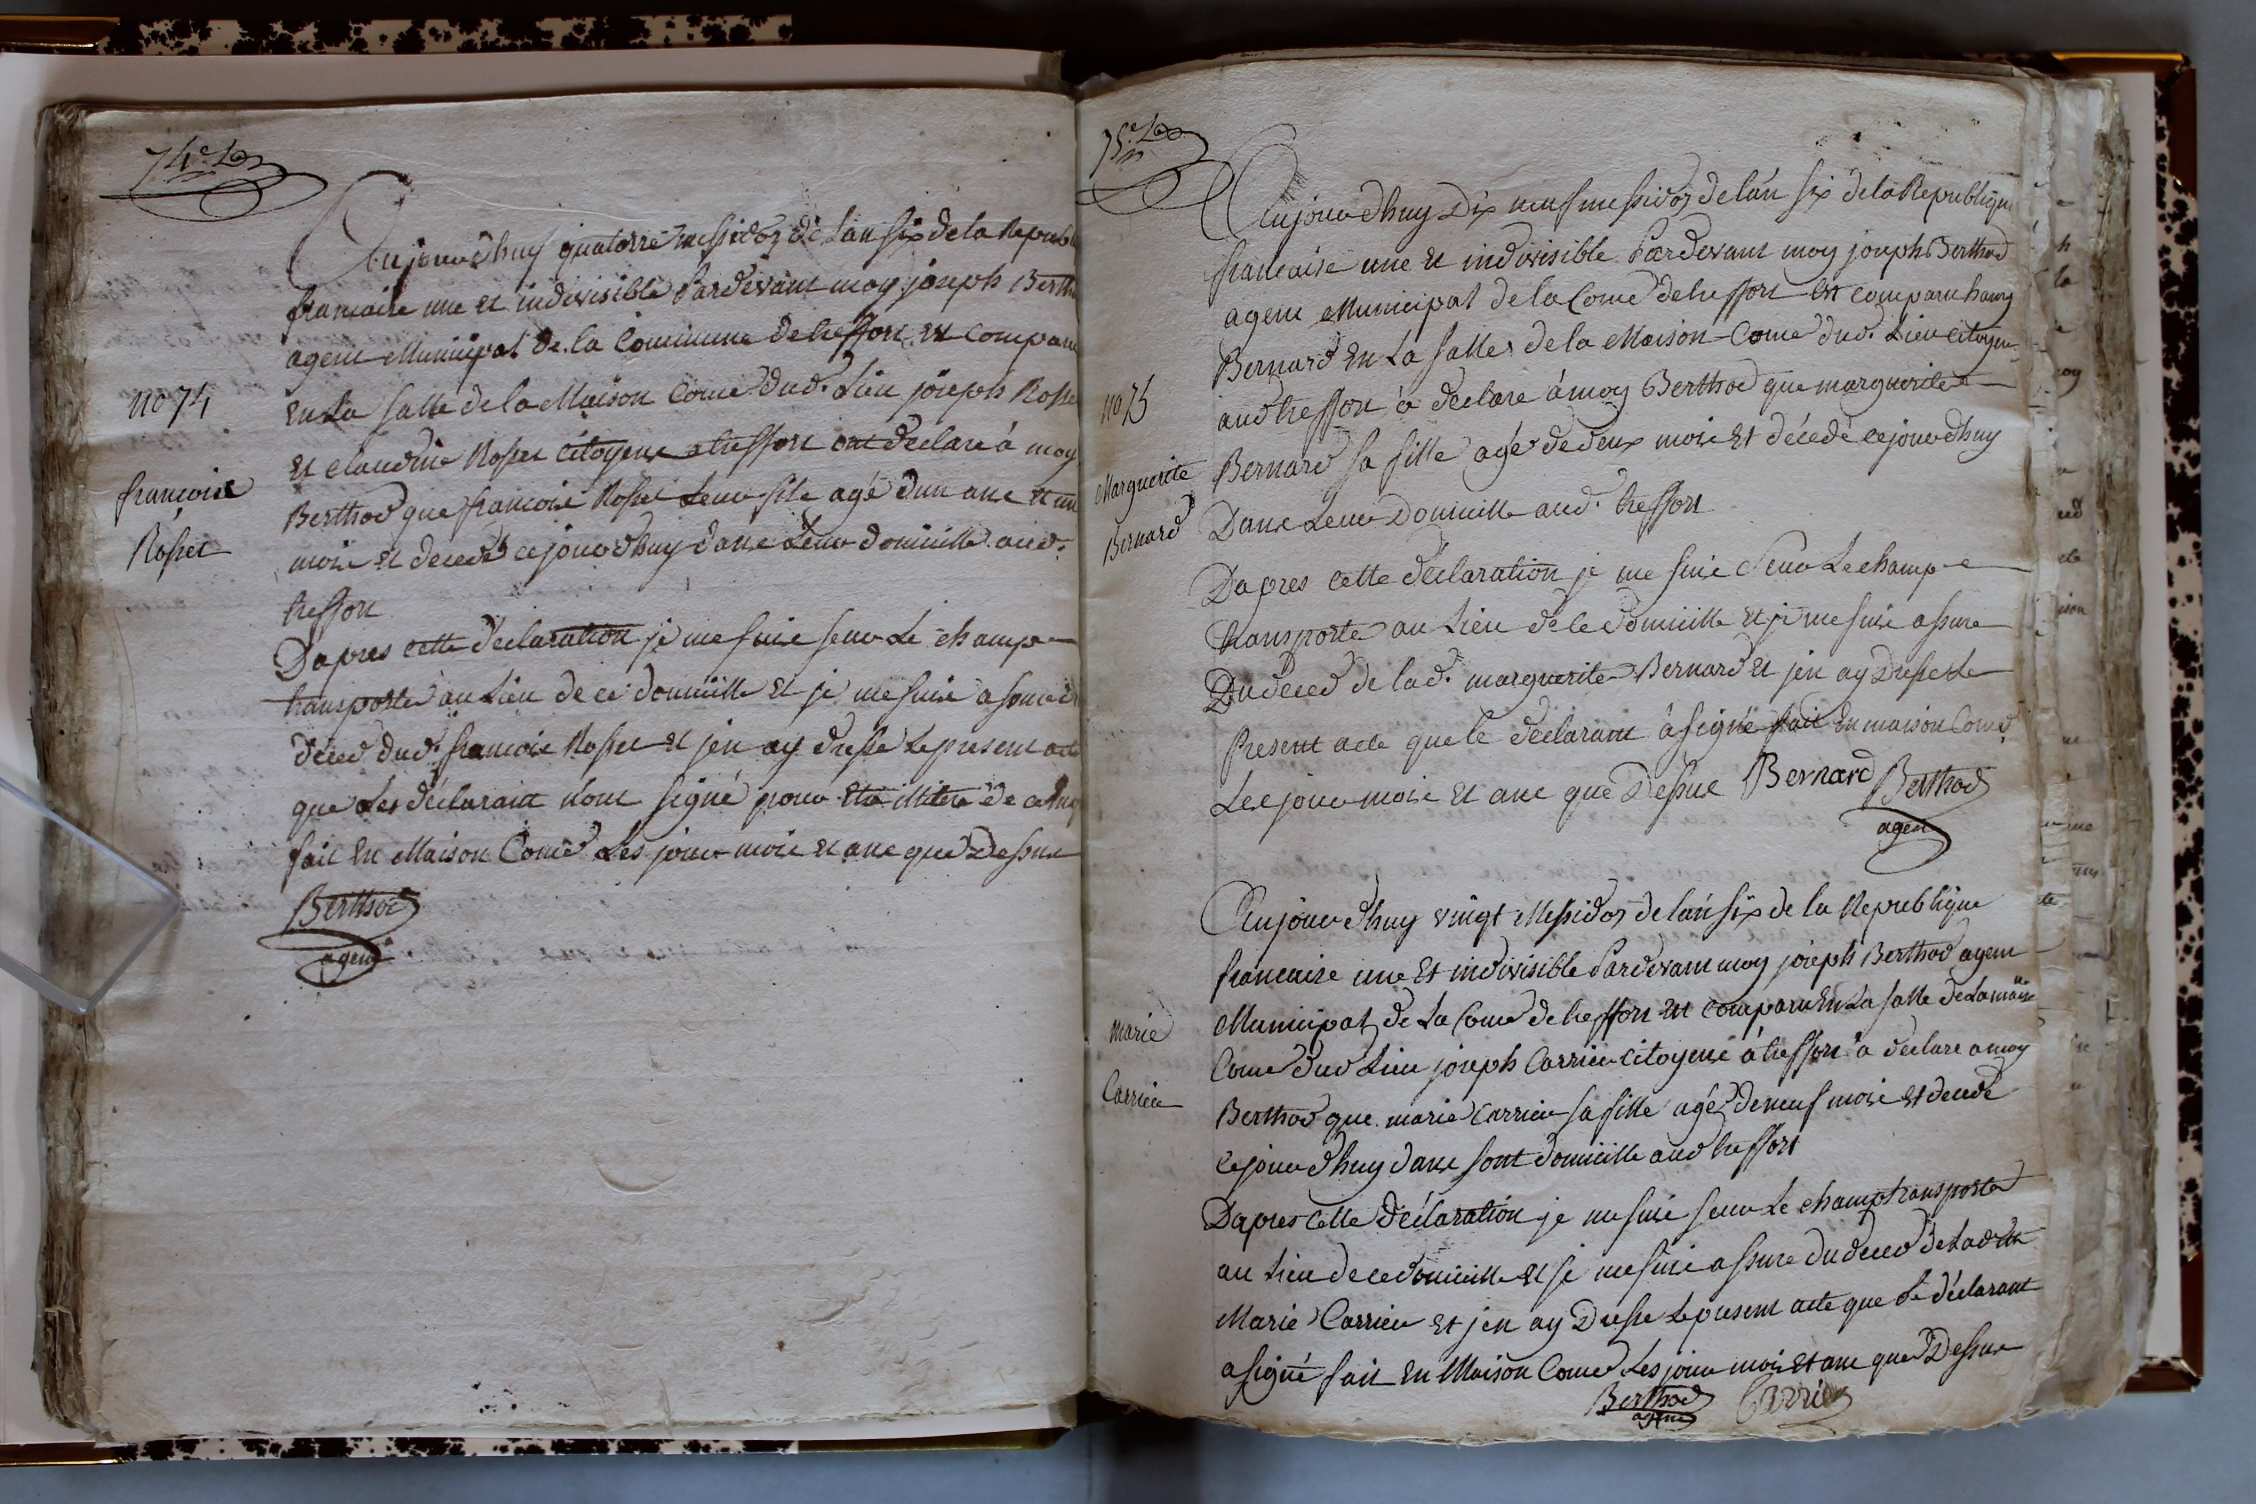 74e
Aujourdhuy quatorze messidor de Lan Six de la Republi
francaise une et indivisible Pardevant moy joseph Bertho
agent Municipal de la Commune de tresfort est comparu
no 74
En La Salle de la Maison Come dud. Lieu joseph Rosset
et claudine Rosset citoyens a tresffort ont déclaré à moy
françois
Rosset
Berthod que francois Rosset Leur fils agé dun ans et un
mois et decedé cejourdhuy dans Leur domicille aud.
treffort
Dapres cette déclaration je me suis seur Le champ
transporté au Lieu de ce domicille et je me suis assuré d
déced dud. francois Rosset et jen ay dressé Le present acte
que Les déclarant nont signé pour
fait En Maison Come Les jour mois et ans que Dessus
Berthod
agent
75e
Aujourdhuy Dix neuf messidor de lán six de la Republique
francaise une et indivisible Pardevant moy joseph Berthod
agent Municipal de la Come de treffort Est comparu
Bernard En La Salle de la Maison Come dud. Lieu citoyen
no 75
aud treffort à déclaré à moy Berthod que marguerite
Marguerite
Bernard
Bernard sa fille agé de deux mois Et décedé cejourdhuy
Dans Leur Domicille aud. treffort
Dapres cette déclaration je me suis Seur Le champ
transporté au Lieu de ce domicille et je me suis assuré
Du deced de lad. marguerite Bernard et jen ay Dressé Le
Present acte que le déclarant à signé fait En maison Come
Les jour mois et ans que Dessus Bernard Berthod
agent
Aujourdhuy vingt Messidor de lán six de la Republique
francaise une Et indivisible Pardevant moy joseph Berthod agent
Municipal de La Come de treffort est comparu En La salle de La
marie
Carrier
Come dud Lieu joseph Carrier citoyens à treffort à déclaré a moy
Berthod que marie Carrier sa fille agé de neuf mois Et décedé
cejourdhuy dans sont domicille aud treffort
Dapres cette déclaration je me suis seur Le champ transporté
au Lieu de ce domicille et je me suis assuré du deced de Lad
Marie Carrier et jen ay Dressé Le present acte que Le déclarant
a signé fait En Maison Come Les jour mois et ans que Dessus
Berthod Carrier
agent